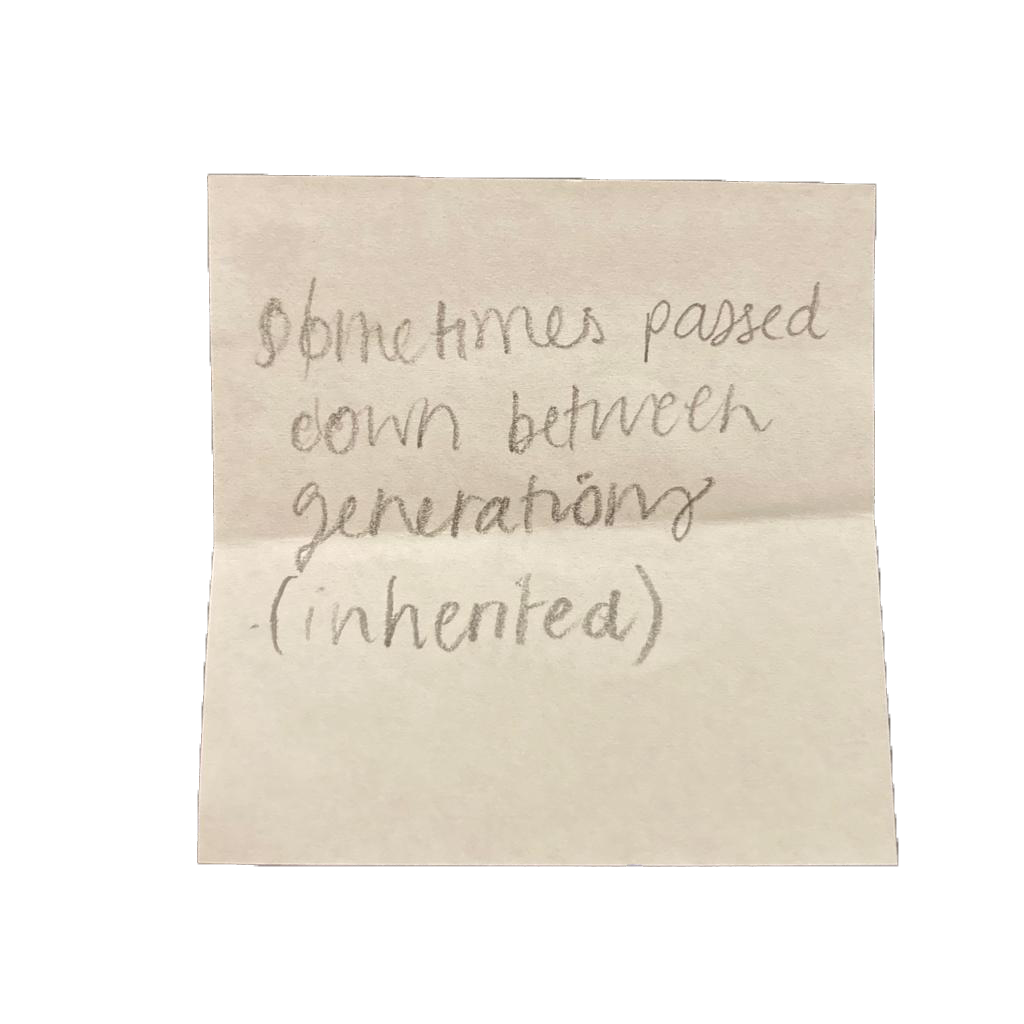 sometimes passed
down between
generations
(inherited)